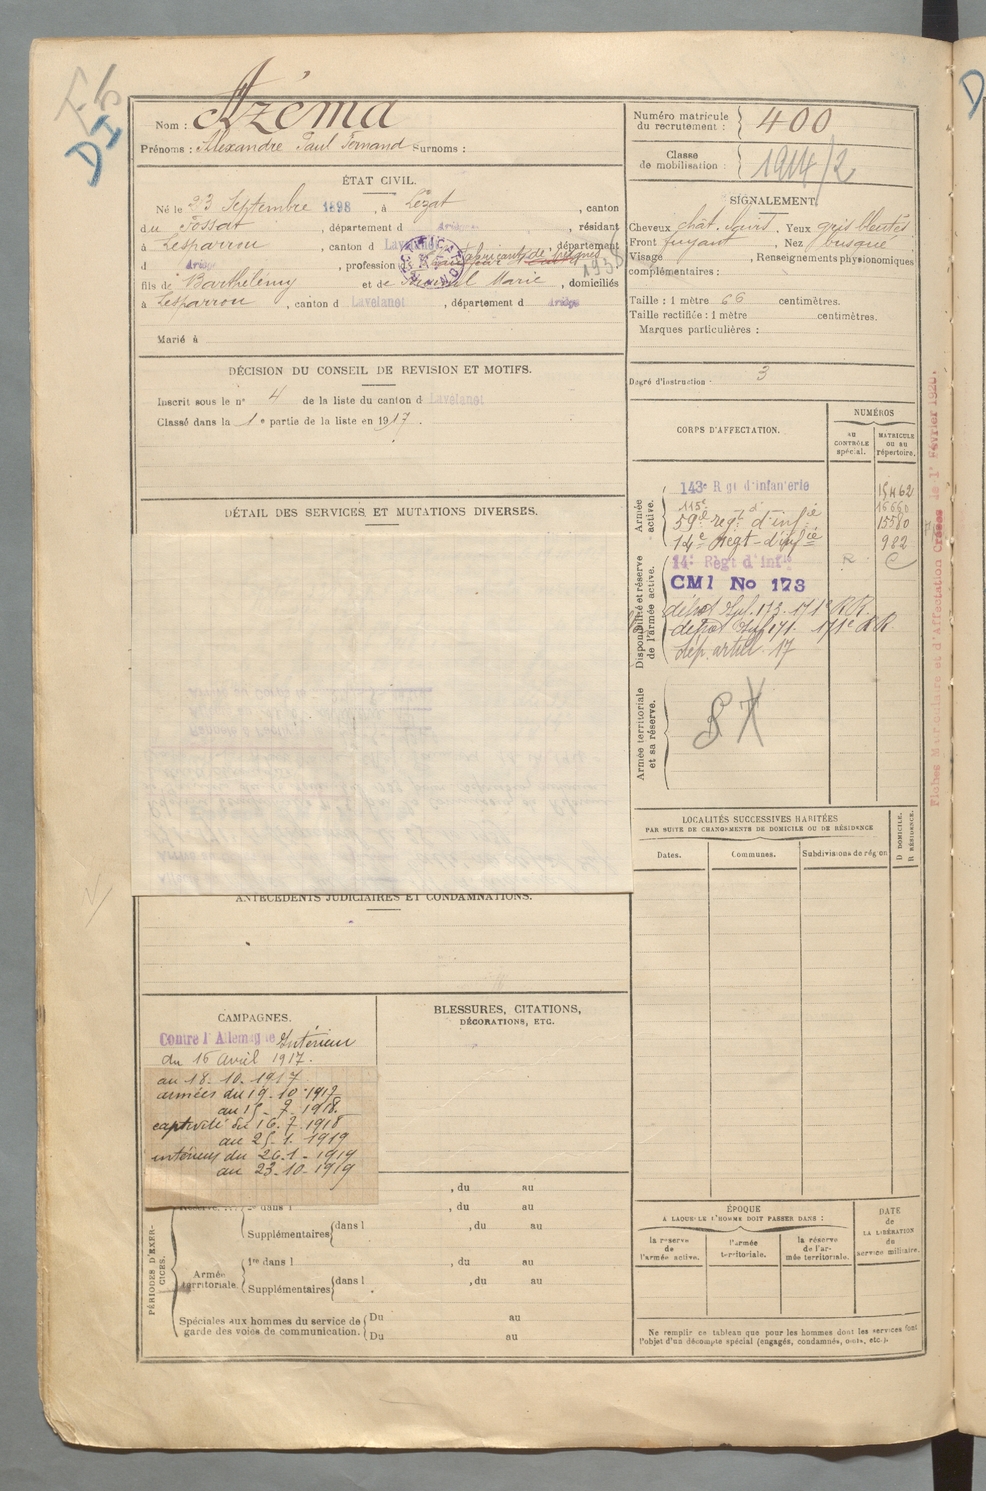 Nom : Azéma
Prénoms : Alexandre Paul Fernand Surnoms :
ÉTAT CIVIL.
Né le 23 Septembre 1898, à Lézat, canton
du Fossat, département d Ariège, résidant
à Lesparrou, canton d Lavelanet, département
d Ariège, profession d fabricant de peignes
1938
fils de Barthélémy et de Marie, domiciliés
à Lesparrou, canton d Lavelanet, département d Ariège
Marié à
DÉCISION DU CONSEIL DE REVISION ET MOTIFS.
Inscrit sous le n° 4 de la liste du canton d Lavelanet
Classé dans la 1e partie de la liste en 1917.
DÉTAIL DES SERVICES ET MUTATIONS DIVERSES.
ANTÉCÉDENTS JUDICIAIRES ET CONDAMNATIONS.
CAMPAGNES.
Contre l'Allemagne Intérieur
du 16 avril 1917.
au 18. 10. 1917
armées du 19. 10. 1917
au 15. 7. 1918.
captivité du 16. 7. 1918
au 25. 1. 1919
intérieur du 26. 1. 1919
au 23. 10. 1919
BLESSURES, CITATIONS,
DÉCORATIONS, ETC.
PÉRIODES D'EXERCICES.
, du au
dans l , du au
Supplémentaires dans l , du au
Armée territoriale.
1re dans l , du au
Supplémentaires dans l , du au
Spéciales aux hommes du service de garde des voies de communication.
Du au
Du au
Numéro matricule du recrutement : 400
Classe de mobilisation : 1914/2
SIGNALEMENT.
Cheveux chât. , Yeux gris bleutés
Front fuyant, Nez busqué
Visage , Renseignements physionomiques
complémentaires :
Taille : 1 mètre 66 centimètres.
Taille rectifiée : 1 mètre centimètres.
Marques particulières :
Degré d'instruction : 3
CORPS D'AFFECTATION.
NUMÉROS
AU CONTRÔLE spécial.
MATRICULE OU AU répertoire.
Armée active.
143e Rgt d'Infanterie 15462
115e 16660
59e regt d'infie 15580
14e Regt d'infie 982
Disponibilité et réserve de l'armée active.
14e Règt d'infie R C
CM1 No 173
dépôt 173. 171e R.R.
dépôt 171. 171e R R
Dép. artie 17
Armée territoriale et sa réserve.
LOCALITÉS SUCCESSIVES HABITÉES
PAR SUITE DE CHANGEMENTS DE DOMICILE OU DE RÉSIDENCE
Dates.
Communes.
Subdivisions de région
D DOMICILE.
R RÉSIDENCE.
ÉPOQUE
A LAQUELLE L'HOMME DOIT PASSER DANS :
la réserve de l'armée active.
l'armée territoriale.
la réserve de l'armée territoriale.
DATE de LA LIBÉRATION du service militaire.
Ne remplir ce tableau que pour les hommes dont les services font
l'objet d'un décompte spécial (engagés, condamnés, omis, etc.).
Fiches Matriculaire et d'Affectation Créées le 1er Février 1920.